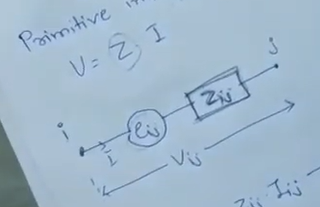 Primitive
V = Z I
j
Zij
eij
i
I
Vij
Zij Iij